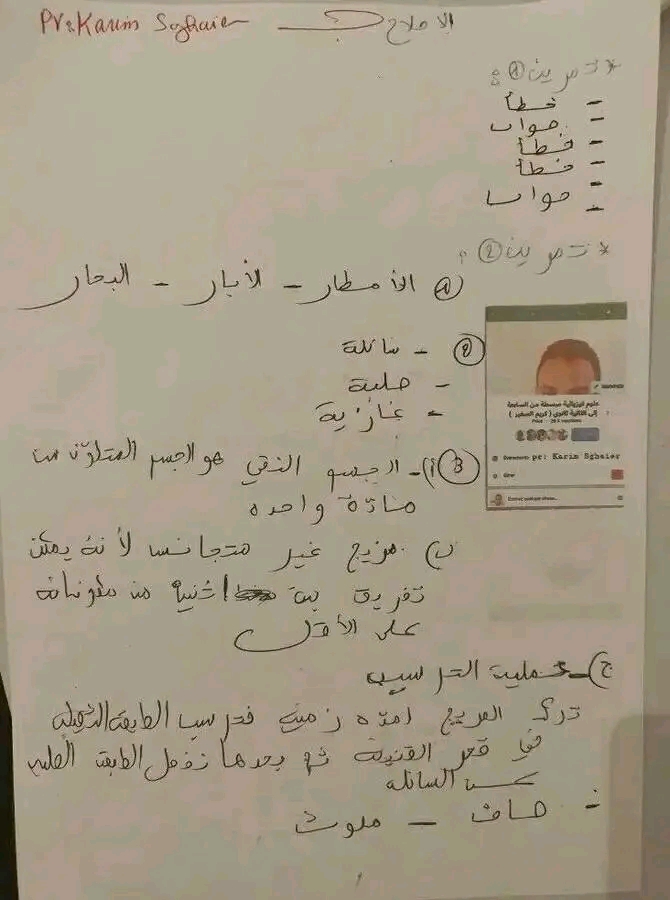 Pr: Karim Sghaier
الإصلاح
* تمرين ① :
- خطأ
- صواب
- خطأ
- خطأ
- صواب
* تمرين ② :
① الأمطار - الأبار - البحار
② - سائلة
- صلبة
- غازية
③ أ) - الجسم النقي هو الجسم المتكون من
مادة واحده
ب) مزيج غير متجانس لأنه يمكن
تفريق بين اثنين من مكوناته
على الأقل
ج) - عملية الترسيب
ترك المزيج لمده زمنية فترسب الطبقة الثقيلة
في قعر القنينة ثم بعدها نفصل الطبقة الصلبه
عن السائله
- صاف - ملوث
علوم فيزيائية مبسطة من السابعة
إلى الثانية ثانوي ( كريم الصغير )
pr: Karim Sghaier